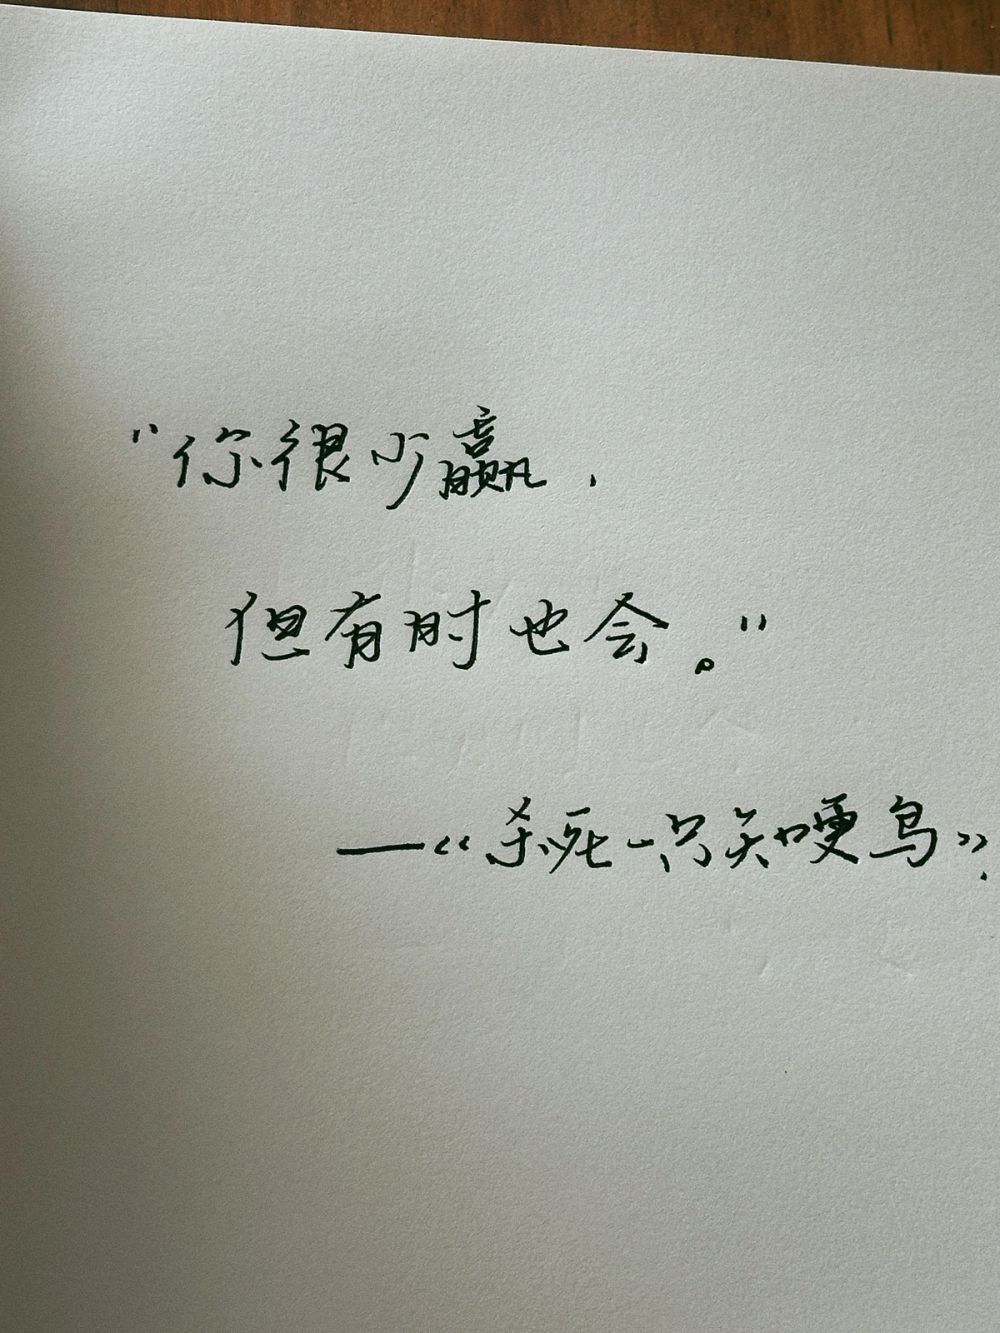 “你很少赢，
但有时也会。”
——《杀死一只知哽鸟》.